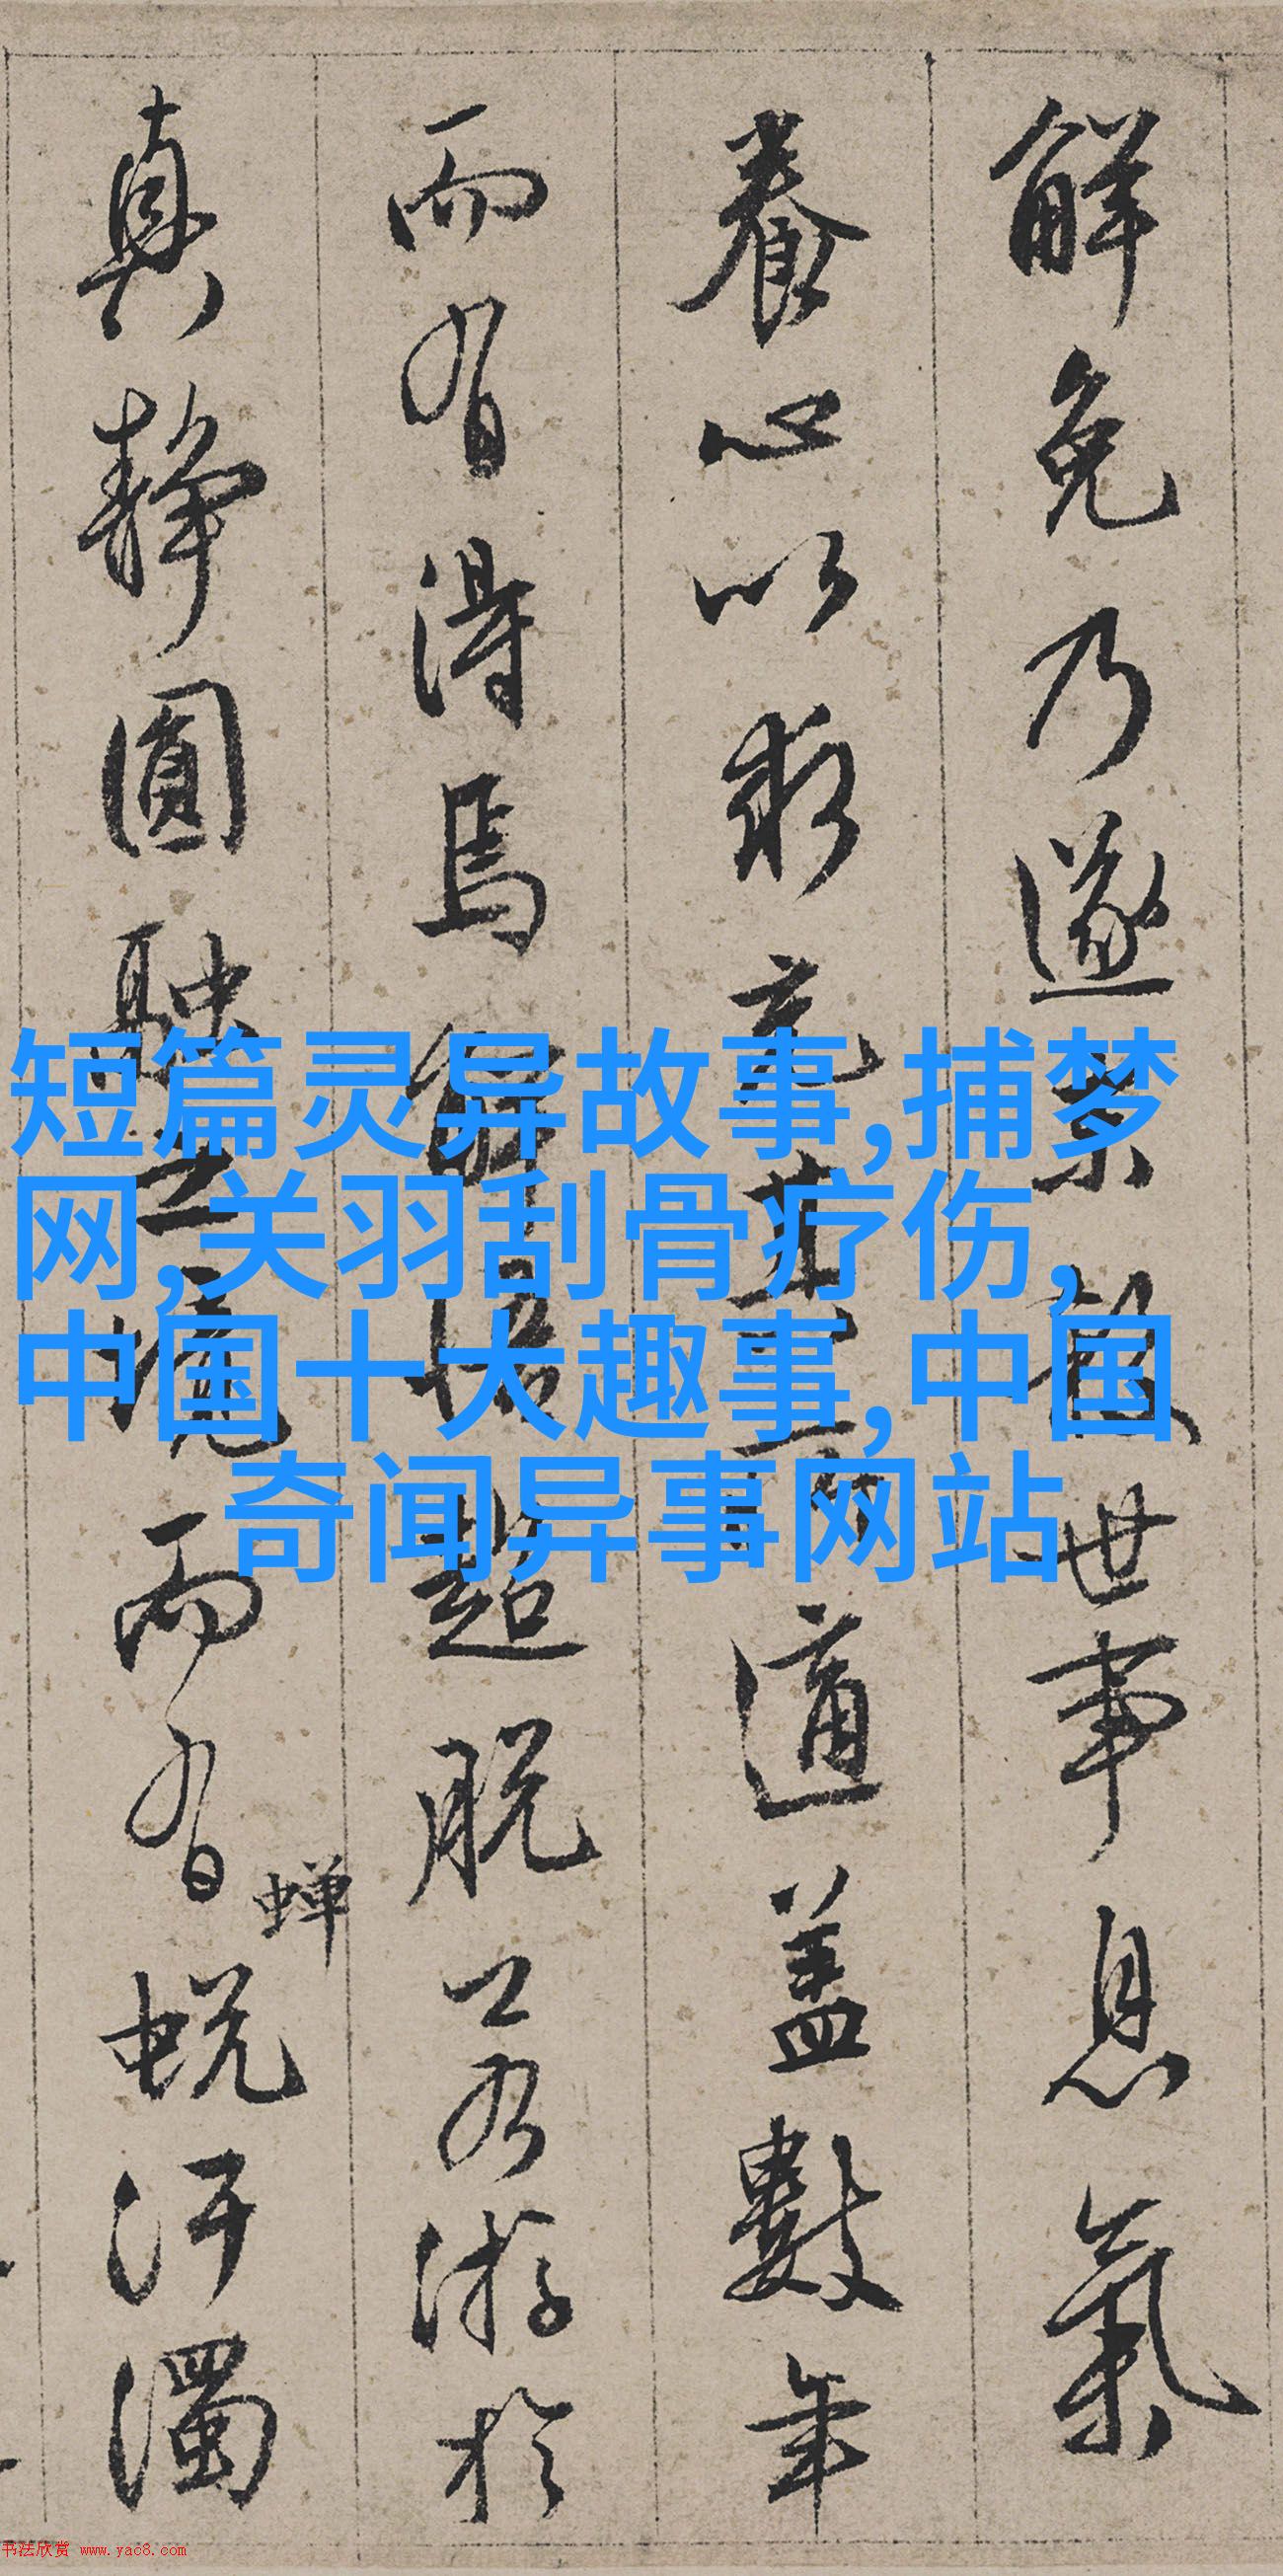 解免乃遂棄 世事息氣
養心以求充 道蓋數年
而有得焉解悟超脫若游於
真靜圓融之境而有蟬蛻汙濁
短篇灵异故事,捕梦
网,关羽刮骨疗伤,
中国十大趣事,中国
奇闻异事网站
书法欣赏 www.yac8.com